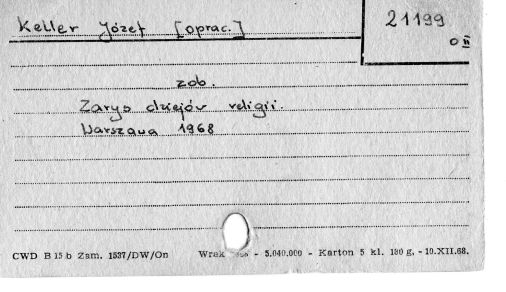 Keller Józef [oprac.]
21199
O II
zob.
Zarys dziejów religii.
Warszawa 1968
CWD B 15 b Zam. 1537/DW/On Wrak - 5.040.000 - Karton 5 kl. 180 g. - 10.XII.68.